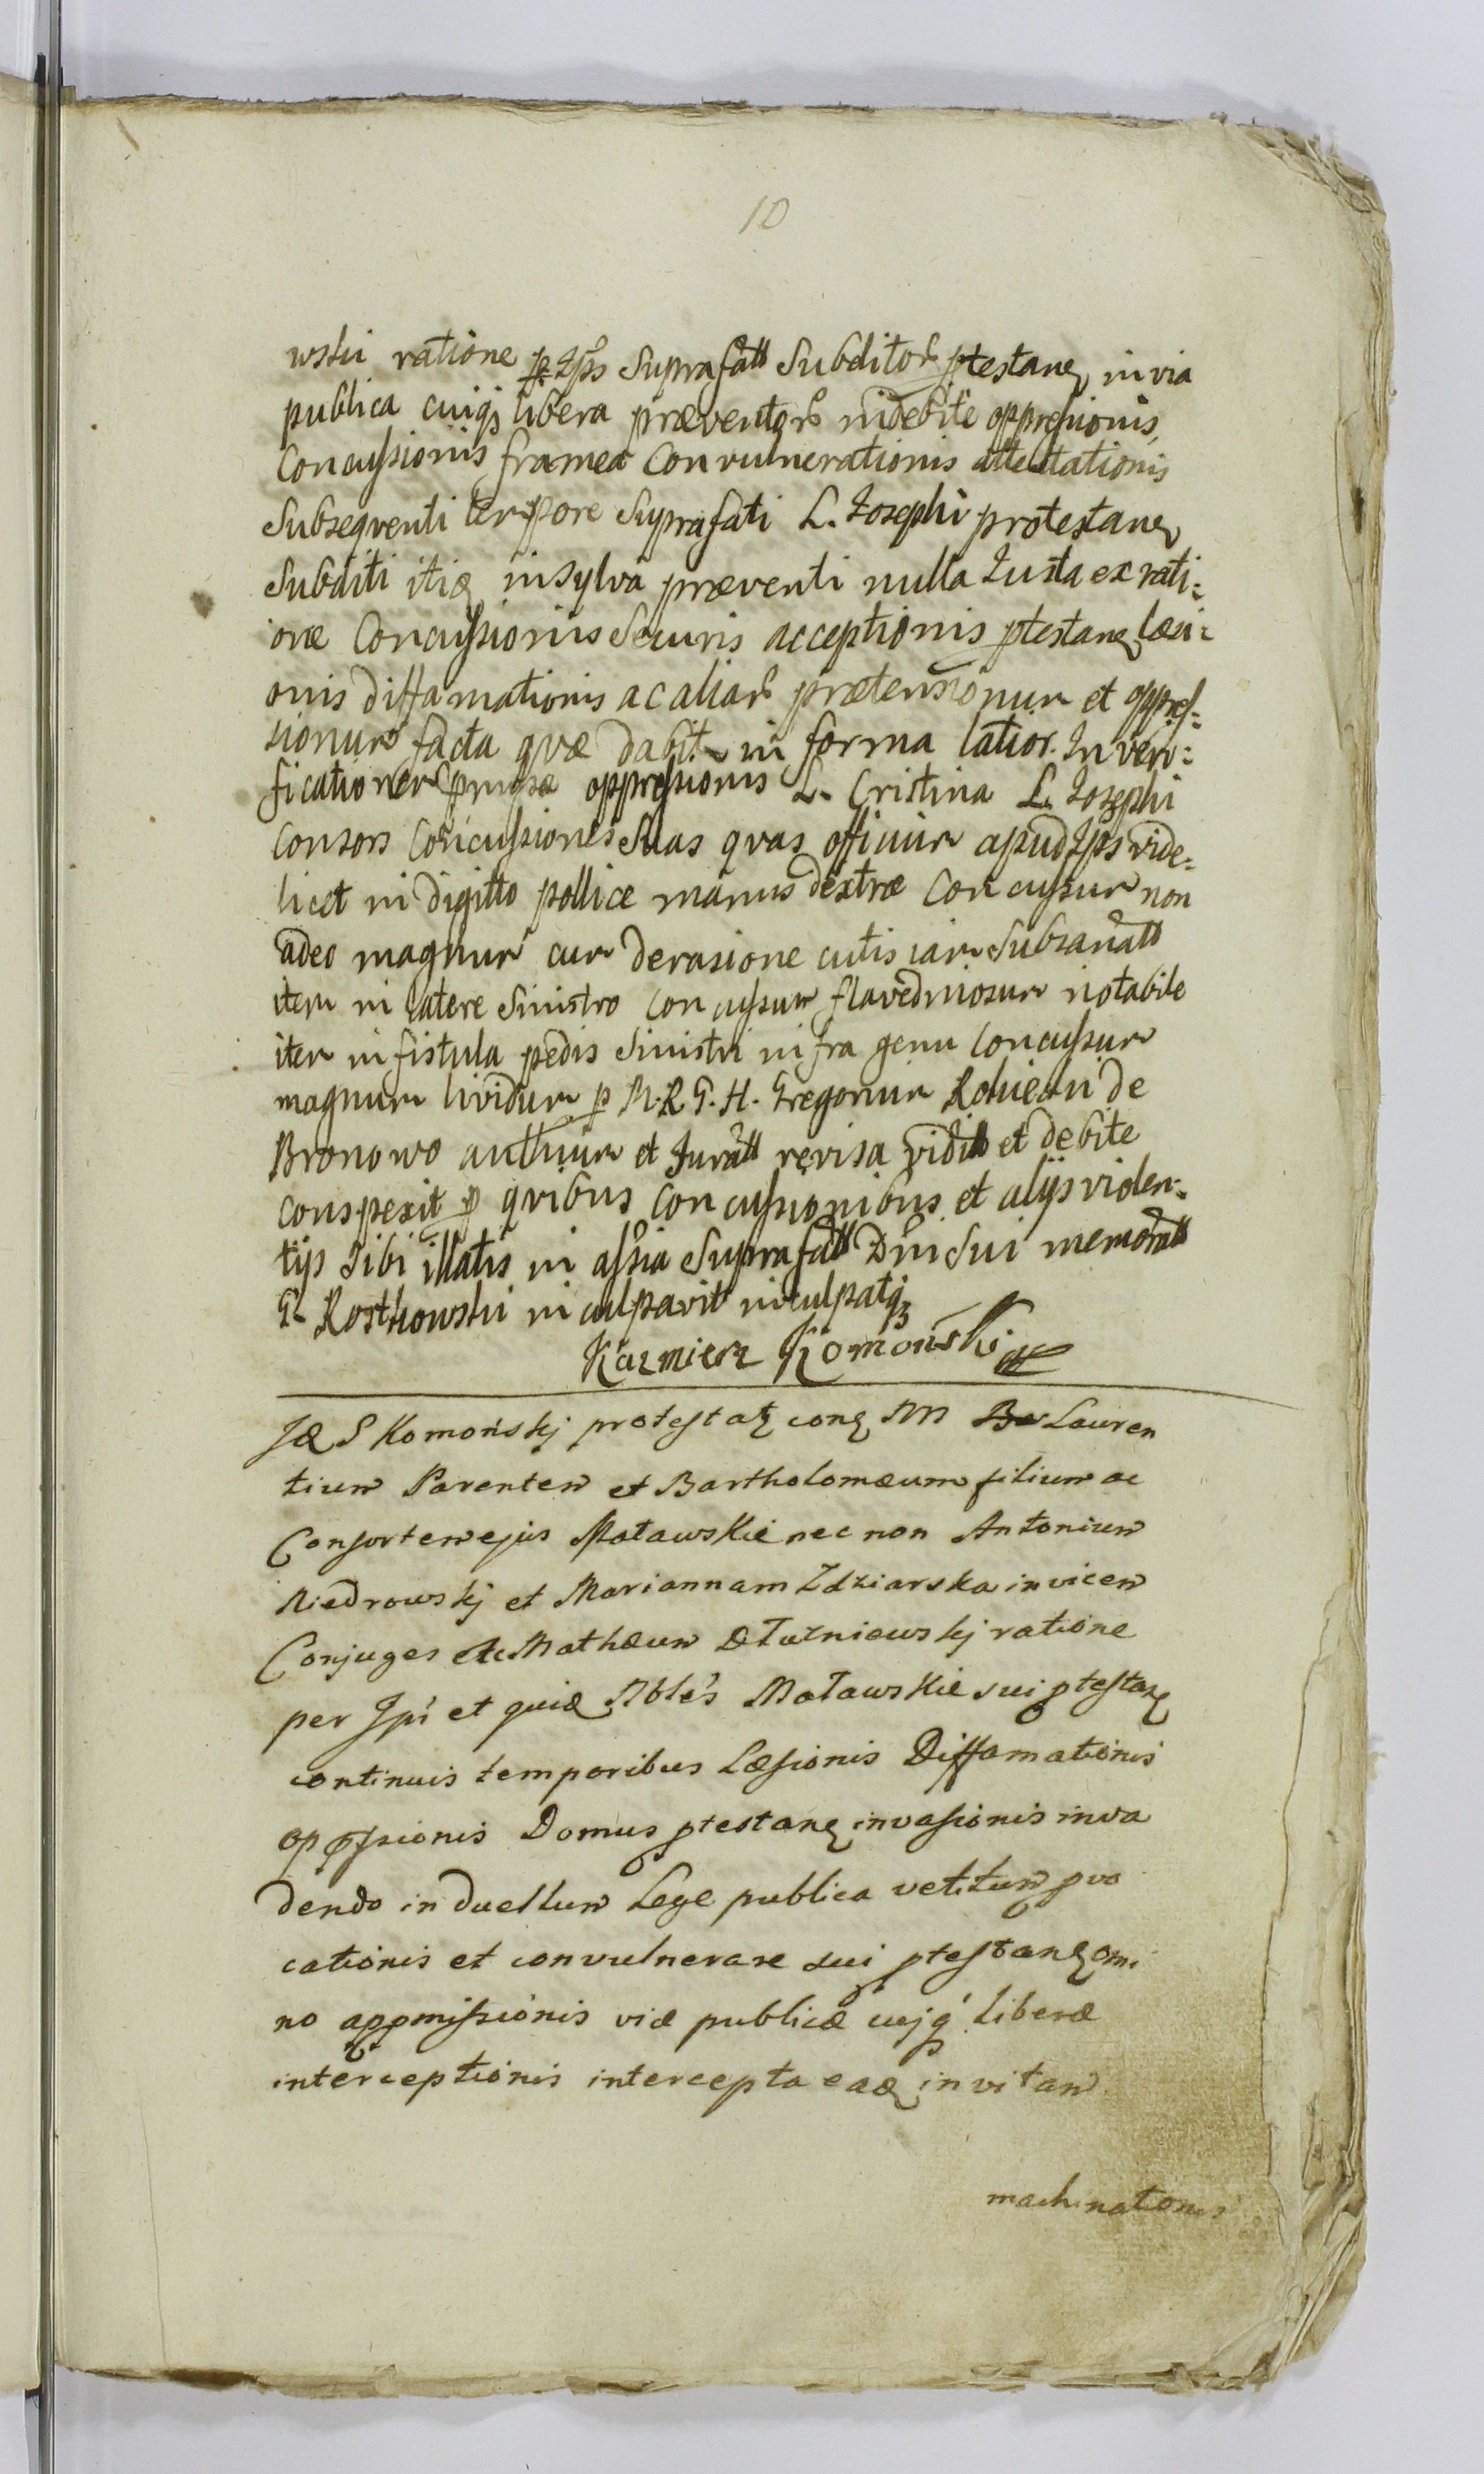 10
wski ratione p Ips Suprafatt Subditor ptestane in via
publica cuiq libera præventor indebite oppressionis,
Concussionis framea Convulnerationis attestationis
Subsequenti tempore Suprafati L. Josephi protestane
Subditi itiq in sylva præventi nulla Justa ex rati:
one Concussionis Securis acceptionis ptestane læsi:
onis diffamationis ac aliar prætensionum et oppres:
sionum facta quæ dabit in forma latior. In veri:
ficationem præmissæ oppressionis L. Cristina L. Josephi
Consors Concussiones Suas quas offium apud Ips vide:
licet in digitto pollice manus dextræ Concussum non
adeo magnum cum derasione cutis iam Subsanatt
item in latere Sinistro Concussum flavedinosum notabile
item in fistula pedis Sinistri infra genu Concussum
magnum lividum p M. R. G. H. Gregorium de
Bronowo authum et Juratt revisa vidit et debite
conspexit p quibus Concussionibus et alijs violen:
tijs Sibi illatis in assia Suprafatt Dni Sui memoratt
G. Rostkowski inculpavit inculpatq
Kazmierz Komoński
J&S Komońskj protestatz cone MM Lauren
tium Parentem et Bartholomæum filium ac
Consortem ejus Małauskie nec non Antonium
Niedrowskj et Mariannam Zdziarska invicem
Conjuges ac Mathæum Dłużniewskj ratione
per Ipś et quid Nbłes Małauskie sui ptestane
continuis temporibus Læsionis Diffamationis
oppssionis Domus ptestane invasionis inva
dendo in duellum Lege publica vetitum pvo
cationis et convulnerare sui ptestane omi
no appmissionis viæ publicæ cujq liberæ
interceptionis intercepta eaq in vitam
machinationis